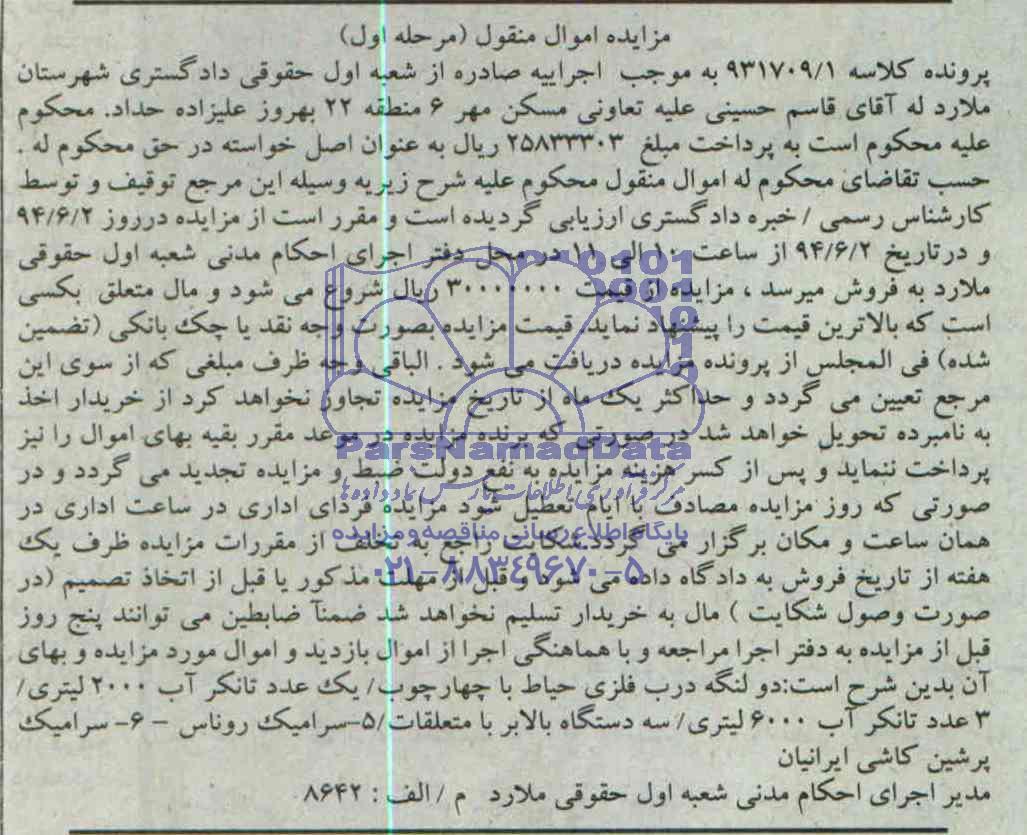 مزایده اموال منقول (مرحله اول)
پرونده کلاسه ۹۳۱۷۰۹/۱ به موجب اجراییه صادره از شعبه اول حقوقی دادگستری شهرستان
ملارد له آقای قاسم حسینی علیه تعاونی مسکن مهر ۶ منطقه ۲۲ بهروز علیزاده حداد. محکوم
علیه محکوم است به پرداخت مبلغ ۲۵۸۳۳۳۰۳ ریال به عنوان اصل خواسته در حق محکوم له .
حسب تقاضای محکوم له اموال منقول محکوم علیه شرح زیربه وسیله این مرجع توقیف و توسط
کارشناس رسمی / خبره دادگستری ارزیابی گردیده است و مقرر است از مزایده درروز ۹۴/۶/۲
و درتاریخ ۹۴/۶/۲ از ساعت ۱۰ الی ۱۱ در محل دفتر اجرای احکام مدنی شعبه اول حقوقی
ملارد به فروش میرسد ، مزایده از قیمت ۳۰۰۰۰۰۰۰ ریال شروع می شود و مال متعلق بکسی
است که بالاترین قیمت را پیشنهاد نماید. قیمت مزایده بصورت وجه نقد یا چک بانکی (تضمین
شده) فی المجلس از پرونده مزایده دریافت می شود . الباقی وجه ظرف مبلغی که از سوی این
مرجع تعیین می گردد و حداکثر یک ماه از تاریخ مزایده تجاوز نخواهد کرد از خریدار اخذ
به نامبرده تحویل خواهد شد در صورتی که برنده مزایده در موعد مقرر بقیه بهای اموال را نیز
ParsNamadData
پرداخت ننماید و پس از کسر هزینه مزایده به نفع دولت ضبط و مزایده تجدید می گردد و در
مرکز فرآوری اطلاعات پارس نماد داده ها
صورتی که روز مزایده مصادف با ایام تعطیل شود مزایده فردای اداری در ساعت اداری در
پایگاه اطلاع رسانی مناقصه و مزایده
همان ساعت و مکان برگزار می گردد.شکایت راجع به تخلف از مقررات مزایده ظرف یک
۰۲۱-۸۸۳۴۹۶۷۰-۵
هفته از تاریخ فروش به دادگاه داده می شود و قبل از مهلت مذکور یا قبل از اتخاذ تصمیم (در
صورت وصول شکایت ) مال به خریدار تسلیم نخواهد شد ضمناً ضابطین می توانند پنج روز
قبل از مزایده به دفتر اجرا مراجعه و با هماهنگی اجرا از اموال بازدید و اموال مورد مزایده و بهای
آن بدین شرح است:دو لنگه درب فلزی حیاط با چهارچوب/ یک عدد تانکر آب ۲۰۰۰ لیتری/
۳ عدد تانکر آب ۶۰۰۰ لیتری/ سه دستگاه بالابر با متعلقات/۵-سرامیک روناس – ۶- سرامیک
پرشین کاشی ایرانیان
مدیر اجرای احکام مدنی شعبه اول حقوقی ملارد م / الف : ۸۶۴۲